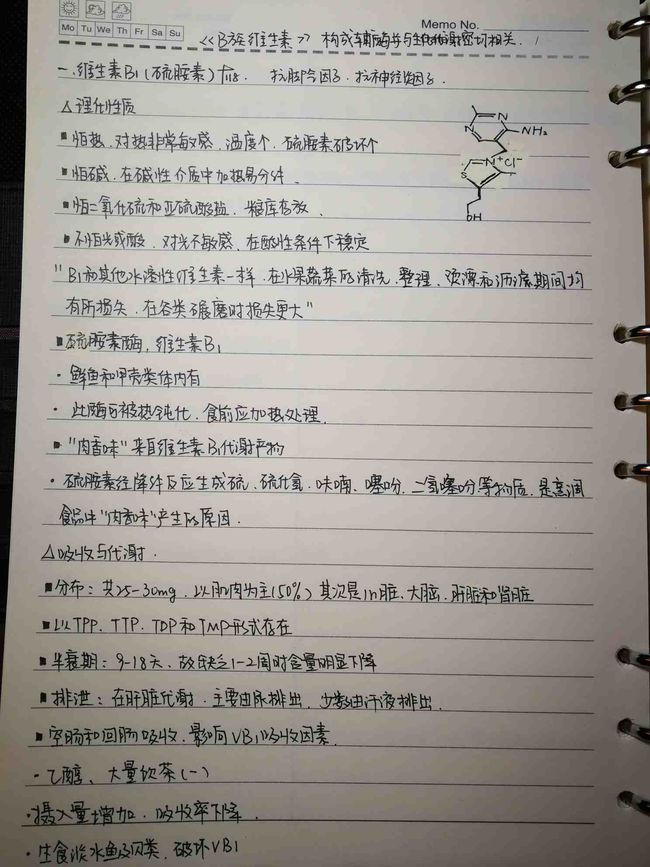 Memo No.
Mo Tu We Th Fr Sa Su
《B族维生素》 构成辅酶并与生化代谢密切相关.
一.维生素B1(硫胺素) 抗脚气因子. 抗神经炎因子.
△理化性质
■怕热. 对热非常敏感, 温度个. 硫胺素破坏个
NH₂
N
N
N⁺ Cl⁻
S
OH
■怕碱. 在碱性介质中加热易分解.
■怕二氧化硫和亚硫酸盐. 粮库存放.
■不怕光或酸. 对光不敏感. 在酸性条件下稳定
"B1和其他水溶性维生素一样. 在水果蔬菜的清洗、整理、烫漂和沥滤期间均
有所损失. 在谷类碾磨时损失更大"
■硫胺素酶, 维生素B1
· 鲜鱼和甲壳类体内有
· 此酶可被热钝化. 食前应加热处理.
■"肉香味"来自维生素B1代谢产物
· 硫胺素经降解反应生成硫、硫化氢、呋喃、噻吩、二氢噻吩等物质, 是烹调
食品中"肉香味"产生的原因.
△吸收与代谢.
■分布: 共25-30mg. 以肌肉为主(50%) 其次是心脏、大脑、肝脏和肾脏
■以TPP、TTP、TDP和TMP形式存在
■半衰期: 9-18天. 故缺乏1-2周时含量明显下降
■排泄: 在肝脏代谢. 主要由尿排出, 少数由汗液排出.
■空肠和回肠吸收. 影响VB1吸收因素.
· 乙醇、大量饮茶(-)
·摄入量增加. 吸收率下降.
· 生食淡水鱼及贝类, 破坏VB1